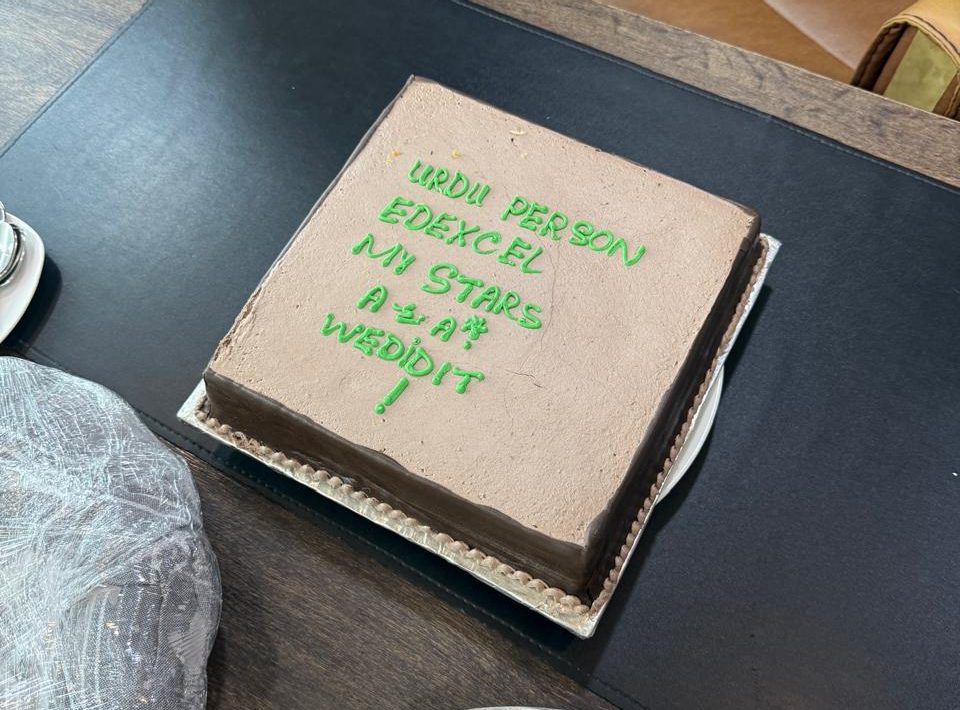 URDU PERSON
EDEXCEL
MY STARS
A & A*
WEDIDIT
!